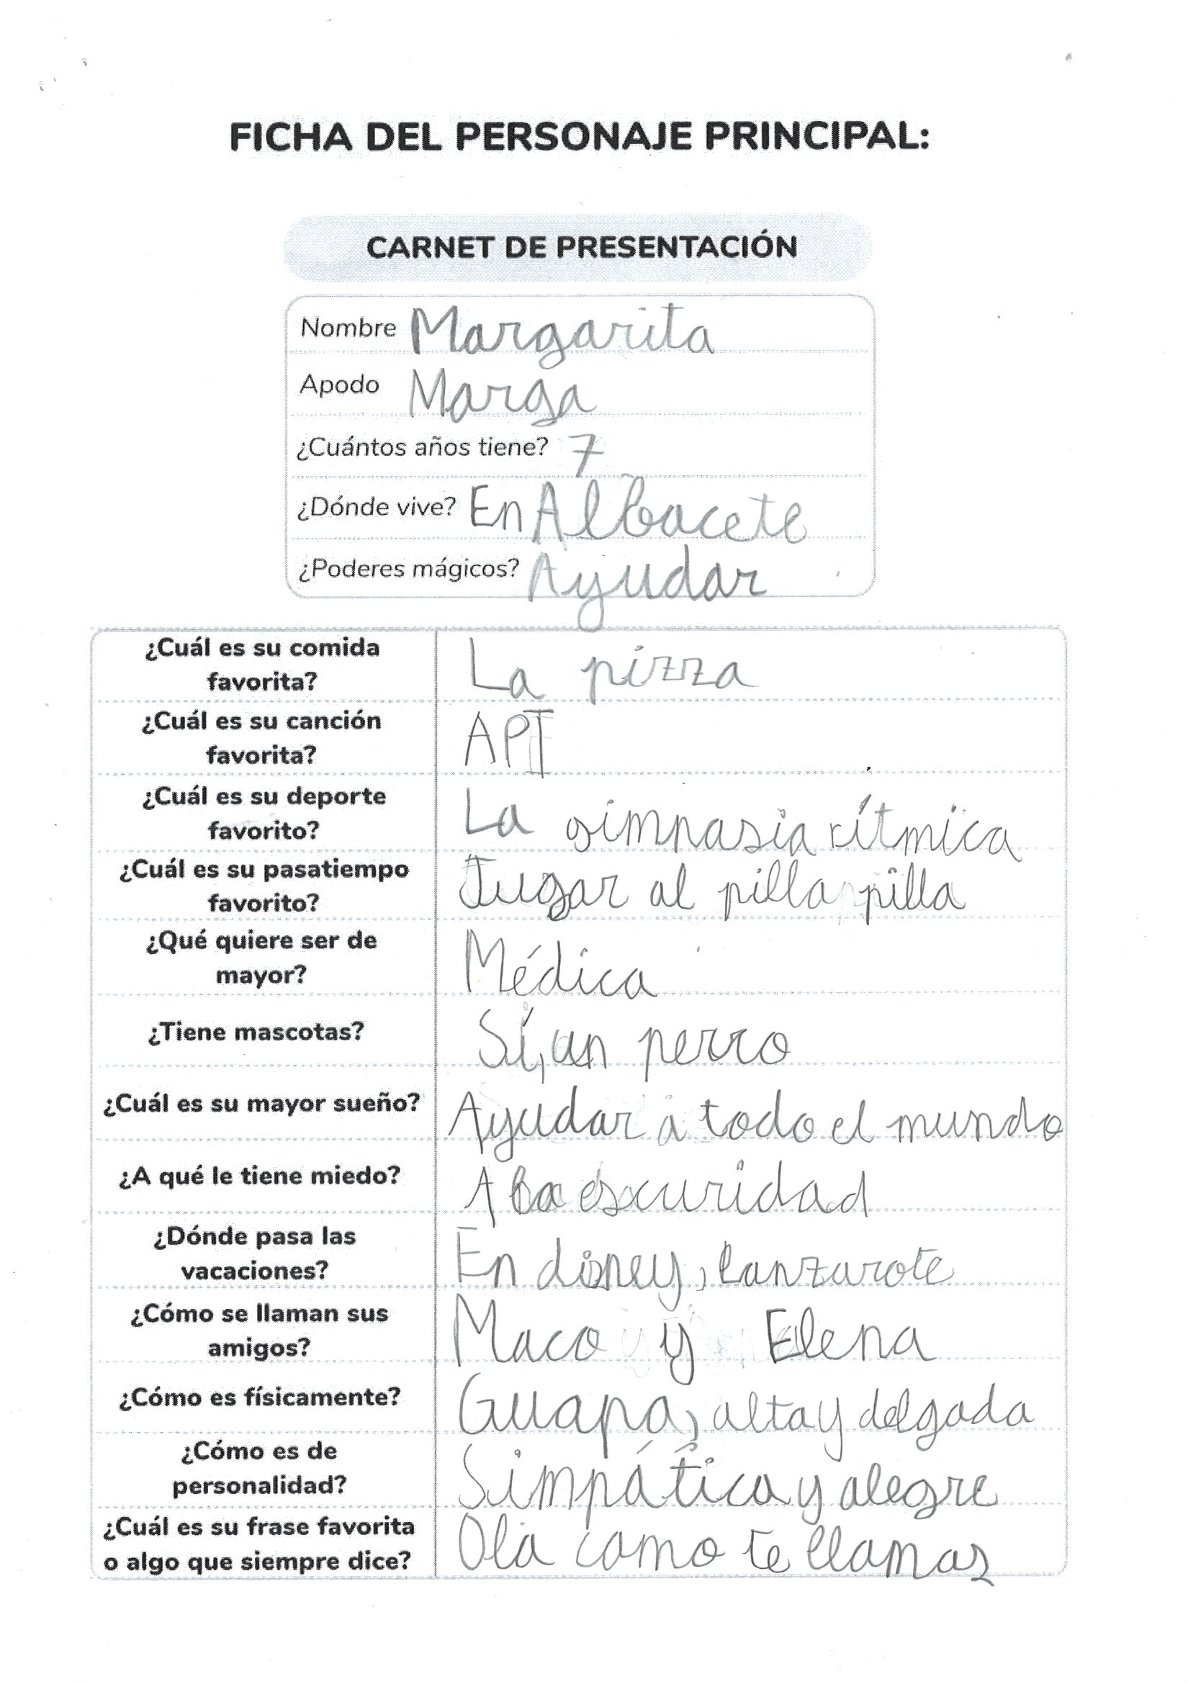 FICHA DEL PERSONAJE PRINCIPAL:
CARNET DE PRESENTACIÓN
Nombre Margarita
Apodo Marga
¿Cuántos años tiene? 7
¿Dónde vive? En Albacete
¿Poderes mágicos? Ayudar
¿Cuál es su comida
favorita?
La pizza
¿Cuál es su canción
favorita?
APT
¿Cuál es su deporte
favorito?
La gimnasia rítmica
¿Cuál es su pasatiempo
favorito?
Jugar al pilla pilla
¿Qué quiere ser de
mayor?
Médica
¿Tiene mascotas?
Sí, un perro
¿Cuál es su mayor sueño?
Ayudar a todo el mundo
¿A qué le tiene miedo?
A la escuridad
¿Dónde pasa las
vacaciones?
En disney, lanzarote
¿Cómo se llaman sus
amigos?
Maco y Elena
¿Cómo es físicamente?
Guapa, alta y delgada
¿Cómo es de
personalidad?
Simpática y alegre
¿Cuál es su frase favorita
o algo que siempre dice?
Ola como te llamas